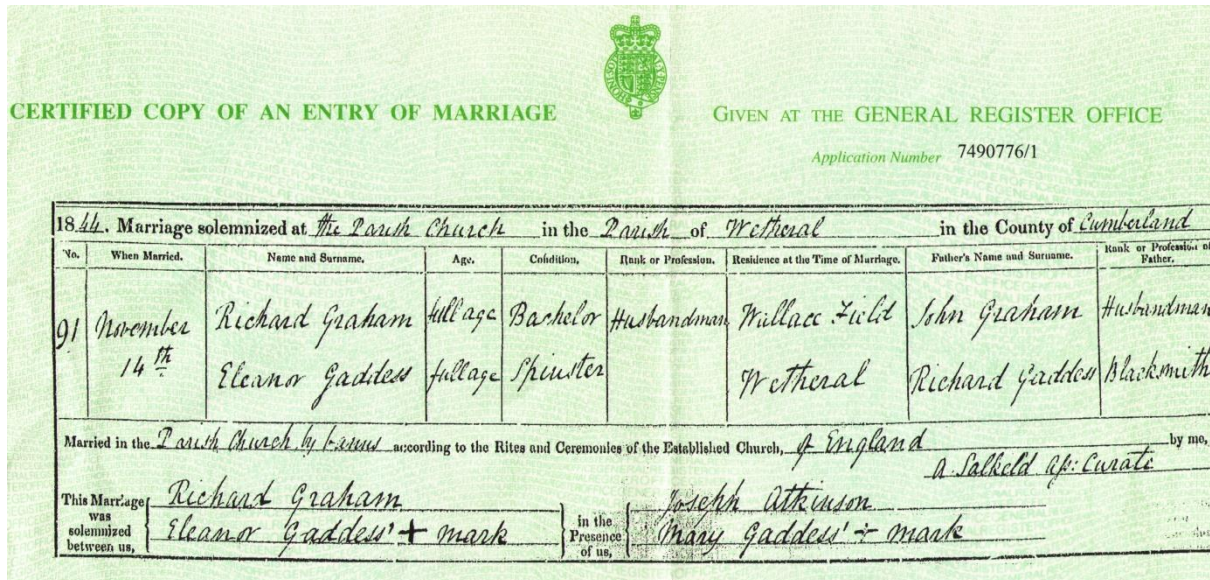 CERTIFIED COPY OF AN ENTRY OF MARRIAGE
GIVEN AT THE GENERAL REGISTER OFFICE
Application Number 7490776/1
1844. Marriage solemnized at the Parish Church in the Parish of Wetheral in the County of Cumberland
No. When Married. Name and Surname. Age. Condition. Rank or Profession. Residence at the Time of Marriage. Father's Name and Surname. Rank or Profession of Father.
91 November 14th Richard Graham full age Bachelor Husbandman Wallace Field John Graham Husbandman
Eleanor Gaddess full age Spinster Wetheral Richard Gaddess Blacksmith
Married in the Parish Church by banns according to the Rites and Ceremonies of the Established Church, of England by me,
A. Salkeld Curate
This Marriage was solemnized between us, Richard Graham
Eleanor Gaddess' + mark
in the Presence of us, Joseph Atkinson
Mary Gaddess' + mark